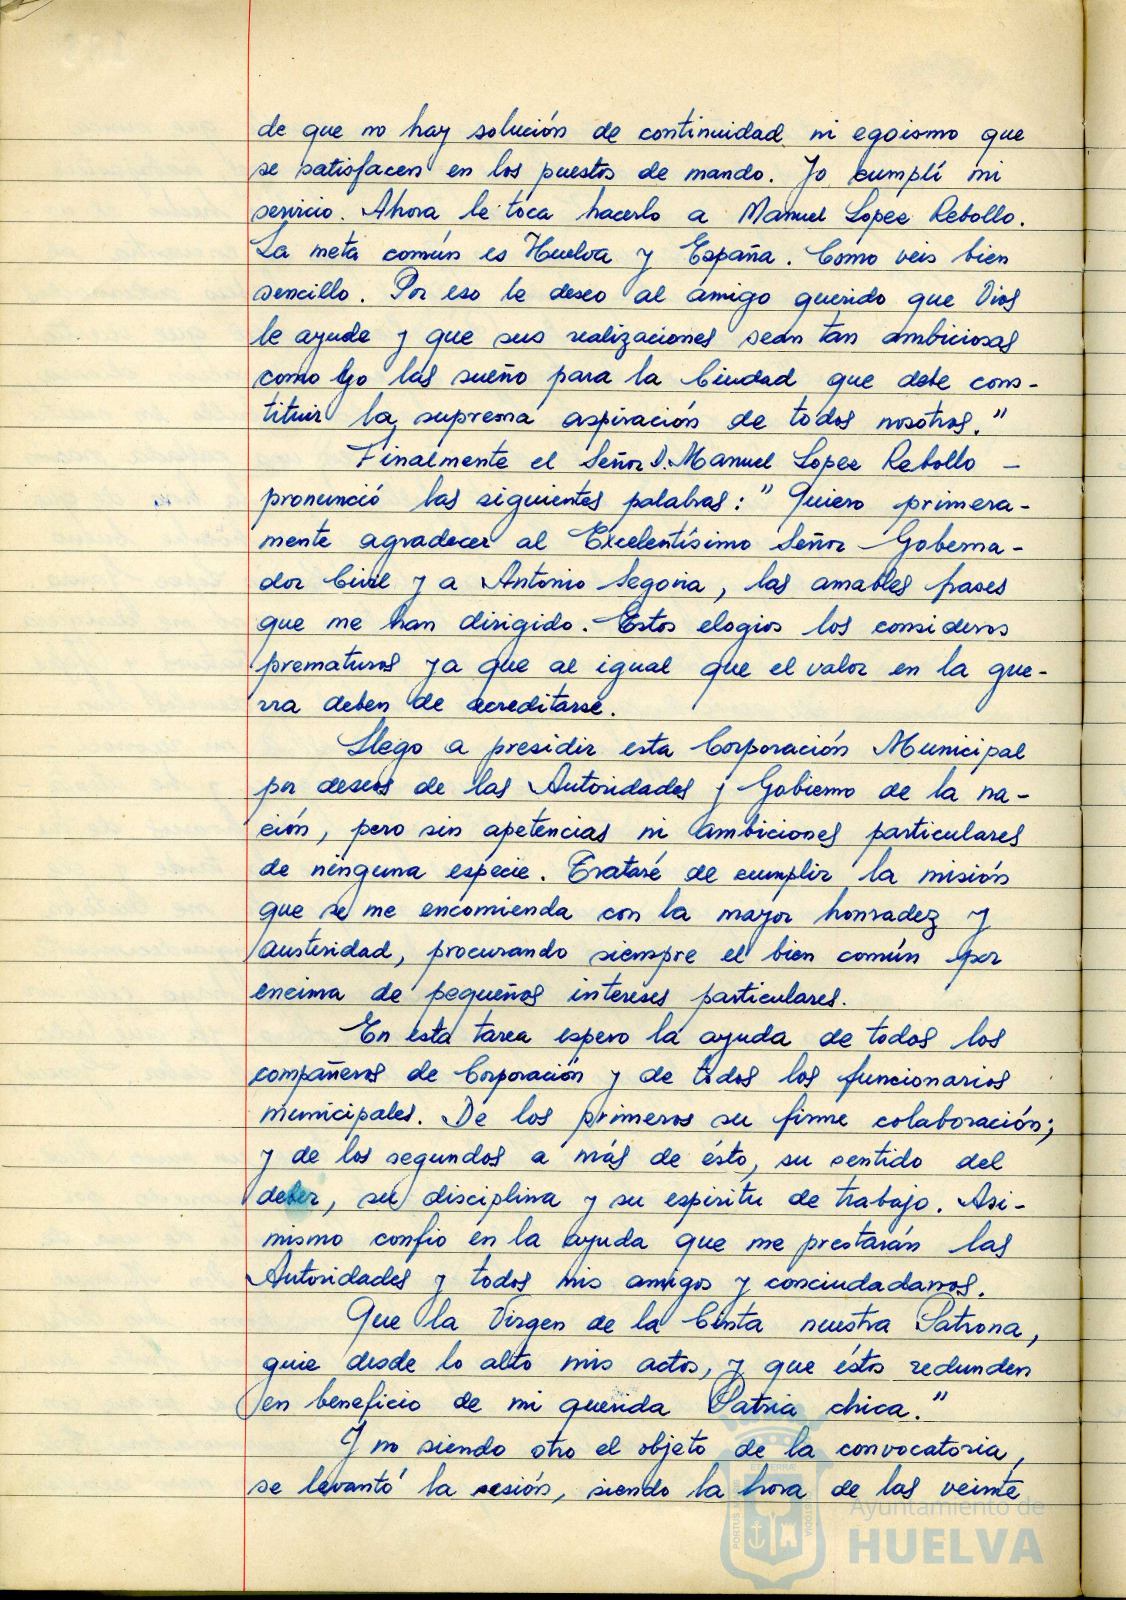 de que no hay solución de continuidad ni egoismo que
se satisfacen en los puestos de mando. Yo cumplí mi
servicio. Ahora le toca hacerlo a Manuel Lopez Rebollo.
La meta común es Huelva y España. Cómo veis bien
sencillo. Por eso le deseo al amigo querido que Dios
le ayude y que sus realizaciones sean tan ambiciosas
como yo las sueño para la Ciudad que debe cons-
tituir la suprema aspiración de todos nosotros."
Finalmente el Señor D. Manuel Lopez Rebollo -
pronunció las siguientes palabras: "Quiero primera-
mente agradecer al Excelentísimo Señor Goberna-
dor Civil y a Antonio Segovia, las amables frases
que me han dirigido. Estos elogios los considero
prematuros ya que al igual que el valor en la gue-
rra deben de acreditarse.
Llego a presidir esta Corporación Municipal
por deseos de las Autoridades y Gobierno de la na-
ción, pero sin apetencias ni ambiciones particulares
de ninguna especie. Trataré de cumplir la misión
que se me encomienda con la mayor honradez y
austeridad, procurando siempre el bien común por
encima de pequeños intereses particulares.
En esta tarea espero la ayuda de todos los
compañeros de Corporación y de todos los funcionarios
municipales. De los primeros su firme colaboración;
y de los segundos a más de ésto, su sentido del
deber, su disciplina y su espíritu de trabajo. Asi-
mismo confio en la ayuda que me prestarán las
Autoridades y todos mis amigos y conciudadanos.
Que la Virgen de la Cinta nuestra Patrona,
guie desde lo alto mis actos, y que éstos redunden
en beneficio de mi querida Patria chica."
Y no siendo otro el objeto de la convocatoria,
se levantó la sesión, siendo la hora de las veinte
Ayuntamiento de
HUELVA